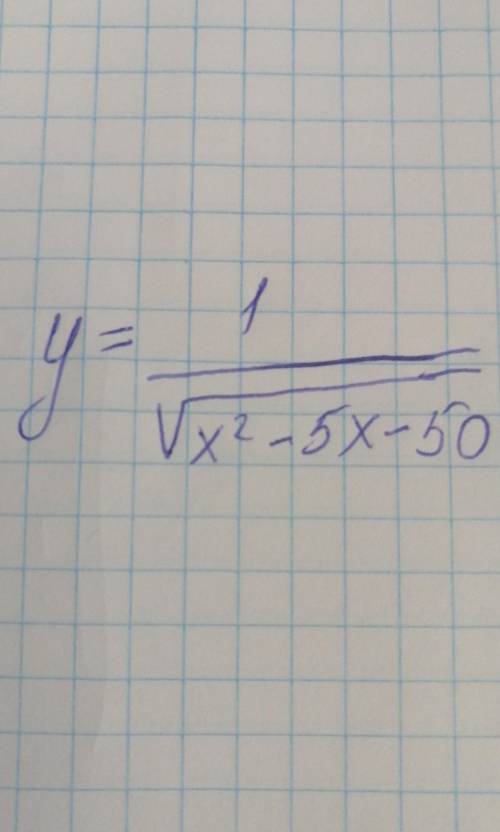 y = 1 / √(x² - 5x - 50)